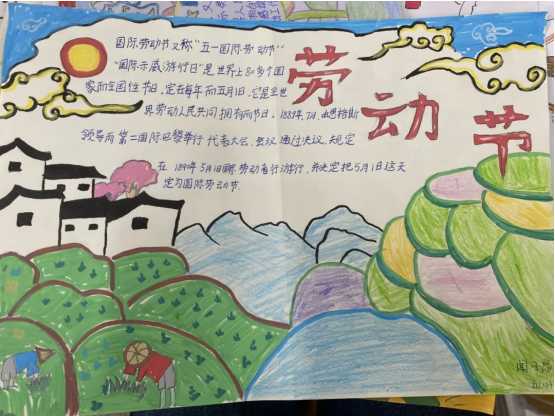 劳动节
国际劳动节又称"五一国际劳动节"
"国际示威游行日"是世界上80多个国
家的全国性节日,定在每年的五月一日,它是全世
界劳动人民共同拥有的节日。1889年7月,由恩格斯
领导的第二国际巴黎举行代表大会,会议通过决议,规定
在1890年5月1日国际劳动者行动举行,并决定把5月1日这天
定为国际劳动节